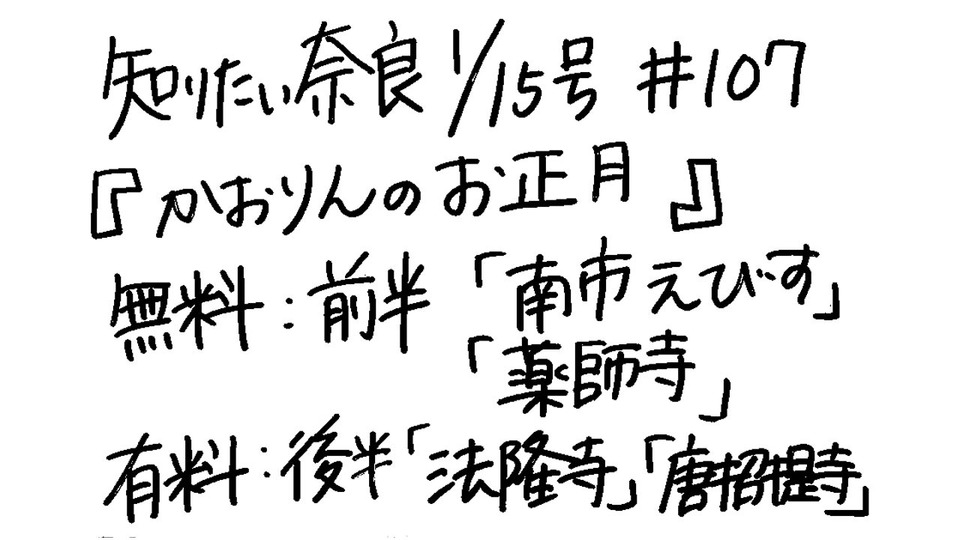 知りたい奈良 1/15号 #107
『かおりんのお正月』
無料:前半「南市えびす」
「薬師寺」
有料:後半「法隆寺」「唐招提寺」